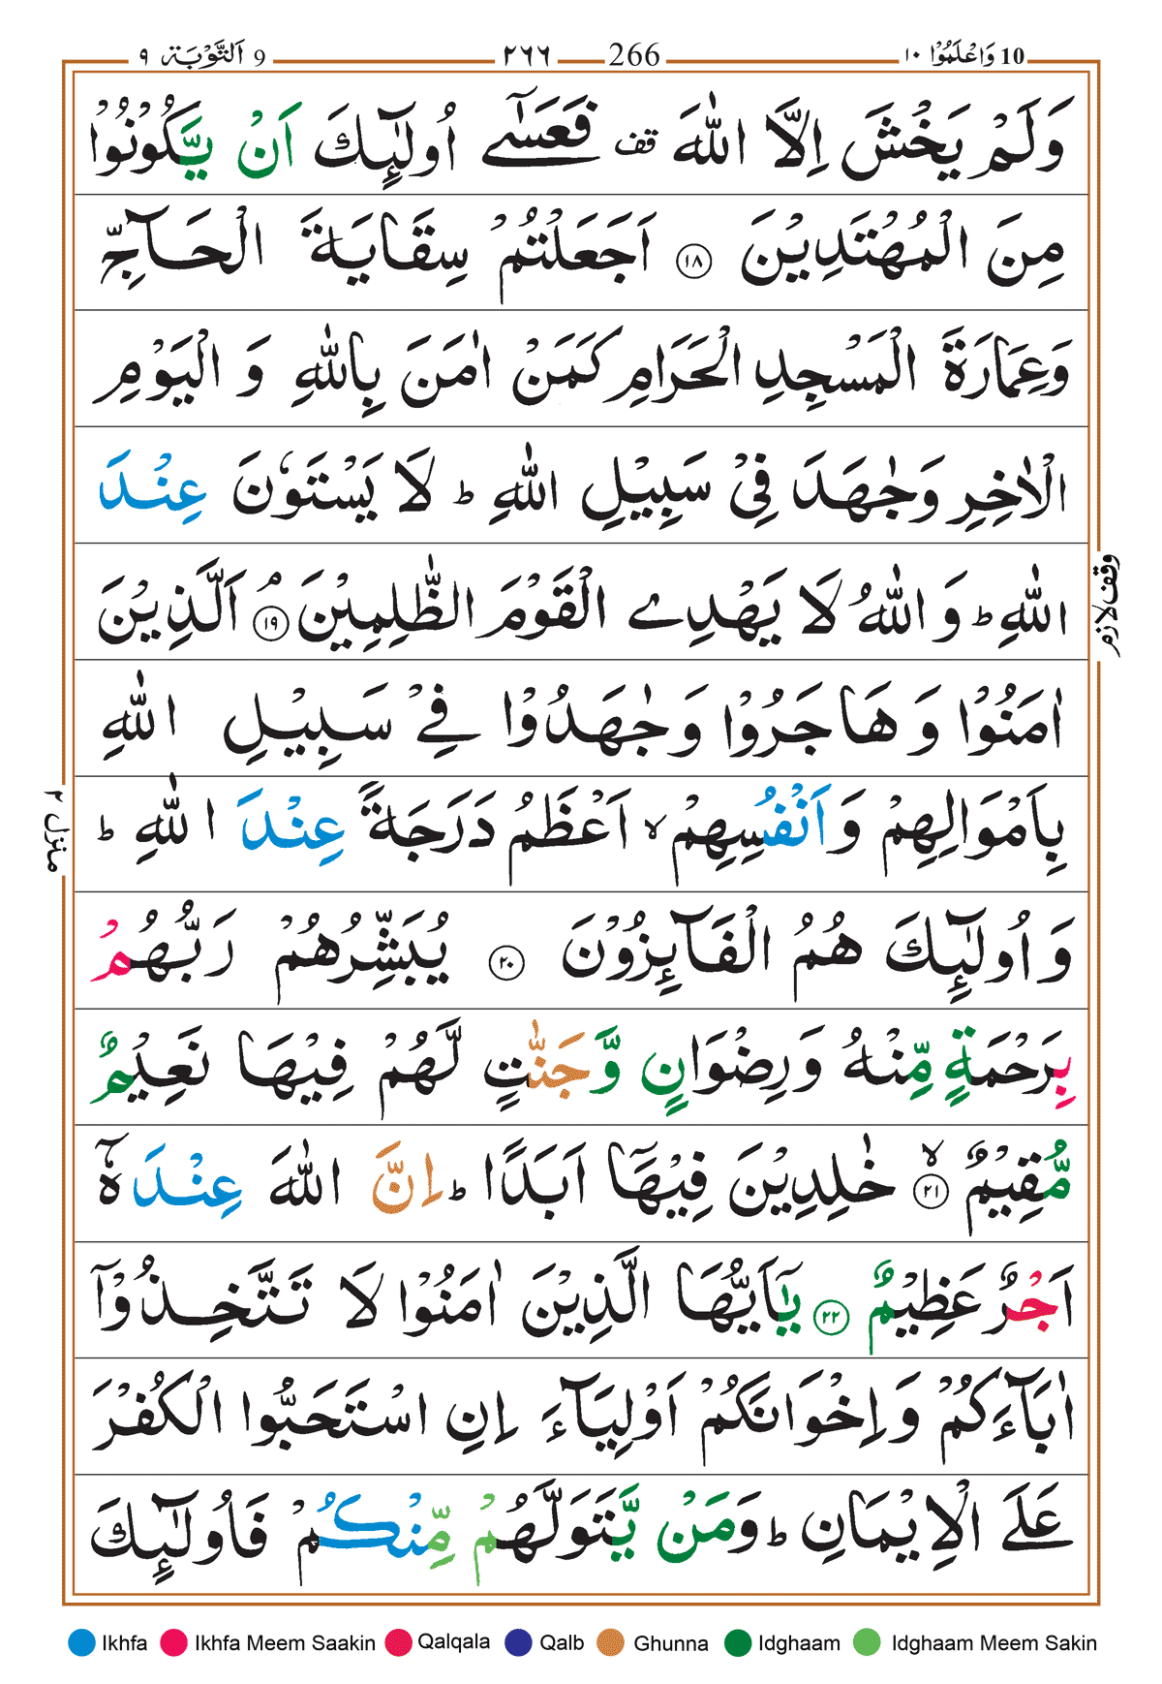 10 وَاعْلَمُوْا ١٠
266 ٢٦٦
9 اَلتَّوْبَة ٩
وَلَمْ يَخْشَ اِلَّا اللّٰهَ قف فَعَسٰٓى اُولٰٓئِكَ اَنْ يَّكُوْنُوْا
مِنَ الْمُهْتَدِيْنَ ١٨ اَجَعَلْتُمْ سِقَايَةَ الْحَآجِّ
وَعِمَارَةَ الْمَسْجِدِ الْحَرَامِ كَمَنْ اٰمَنَ بِاللّٰهِ وَ الْيَوْمِ
الْاٰخِرِ وَجٰهَدَ فِيْ سَبِيْلِ اللّٰهِ ؕ لَا يَسْتَوٗنَ عِنْدَ
اللّٰهِ ؕ وَ اللّٰهُ لَا يَهْدِى الْقَوْمَ الظّٰلِمِيْنَ ۘ ١٩ اَلَّذِيْنَ
وقف لازم
اٰمَنُوْا وَ هَاجَرُوْا وَ جٰهَدُوْا فِيْ سَبِيْلِ اللّٰهِ
بِاَمْوَالِهِمْ وَ اَنْفُسِهِمْ ۙ اَعْظَمُ دَرَجَةً عِنْدَ اللّٰهِ ؕ
منزل ٢
وَ اُولٰٓئِكَ هُمُ الْفَآئِزُوْنَ ٢٠ يُبَشِّرُهُمْ رَبُّهُمْ
بِرَحْمَةٍ مِّنْهُ وَ رِضْوَانٍ وَّ جَنّٰتٍ لَّهُمْ فِيْهَا نَعِيْمٌ
مُّقِيْمٌ ۙ ٢١ خٰلِدِيْنَ فِيْهَاۤ اَبَدًا ؕ اِنَّ اللّٰهَ عِنْدَهٗۤ
اَجْرٌ عَظِيْمٌ ٢٢ يٰۤاَيُّهَا الَّذِيْنَ اٰمَنُوْا لَا تَتَّخِذُوْۤا
اٰبَآءَكُمْ وَ اِخْوَانَكُمْ اَوْلِيَآءَ اِنِ اسْتَحَبُّوا الْكُفْرَ
عَلَى الْاِيْمَانِ ؕ وَ مَنْ يَّتَوَلَّهُمْ مِّنْكُمْ فَاُولٰٓئِكَ
Ikhfa Ikhfa Meem Saakin Qalqala Qalb Ghunna Idghaam Idghaam Meem Sakin